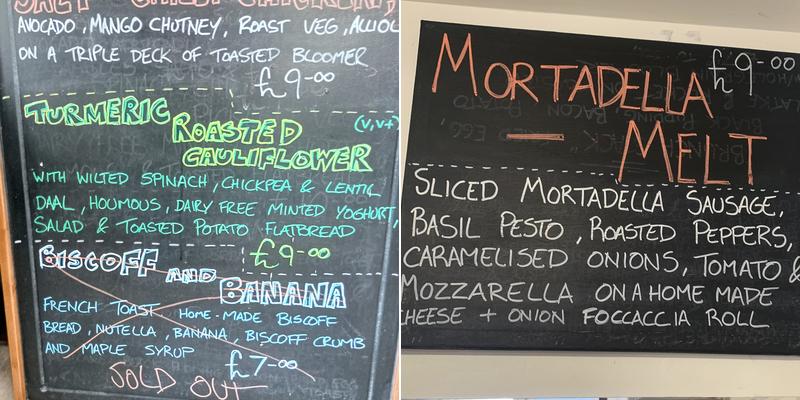 AVOCADO, MANGO CHUTNEY, ROAST VEG, ALLIOL
ON A TRIPLE DECK OF TOASTED BLOOMER
£9-00
TURMERIC
(V, V+)
ROASTED
CAULIFLOWER
WITH WILTED SPINACH, CHICKPEA & LENTIL
DAAL, HOUMOUS, DAIRY FREE MINTED YOGHURT,
SALAD & TOASTED POTATO FLATBREAD
£9-00
BISCOFF AND
BANANA
FRENCH TOAST HOME-MADE BISCOFF
BREAD, NUTELLA, BANANA, BISCOFF CRUMB
AND MAPLE SYRUP
£7-00
SOLD OUT
£9-00
MORTADELLA
— MELT
SLICED MORTADELLA SAUSAGE,
BASIL PESTO, ROASTED PEPPERS,
CARAMELISED ONIONS, TOMATO &
MOZZARELLA ON A HOME MADE
CHEESE + ONION FOCCACCIA ROLL